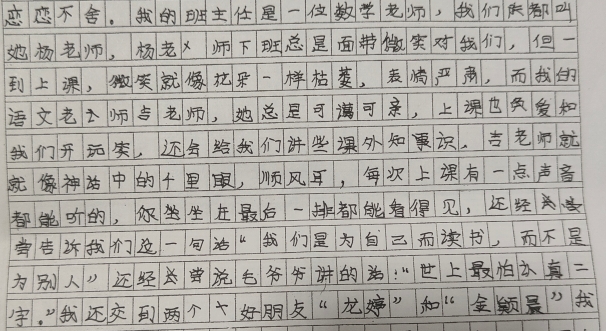 恋恋不舍。我的班主任是一位数学老师,我们大都叫
她杨老师,杨老师下班总是面带微笑对我们,但一
到上课,微笑就像花朵一样枯萎,表情严肃,而我的
语文老师吉老师,她总是可蔼可亲,上课也失爱和
我们开玩笑,还会给我们讲些课外知事识,吉老师就
就像神话中的千里眼,顺风耳,每次上课有一点声音
都能听的,你坐坐在最后一排都能看得见,还经
常告诉我们这一句话“我们是为自己而读书,而不是
为别人”还经常说毛爷爷讲的话:“世上最怕认真二
字。”我还交到两个好朋友“龙婷”和“金颖晨”我